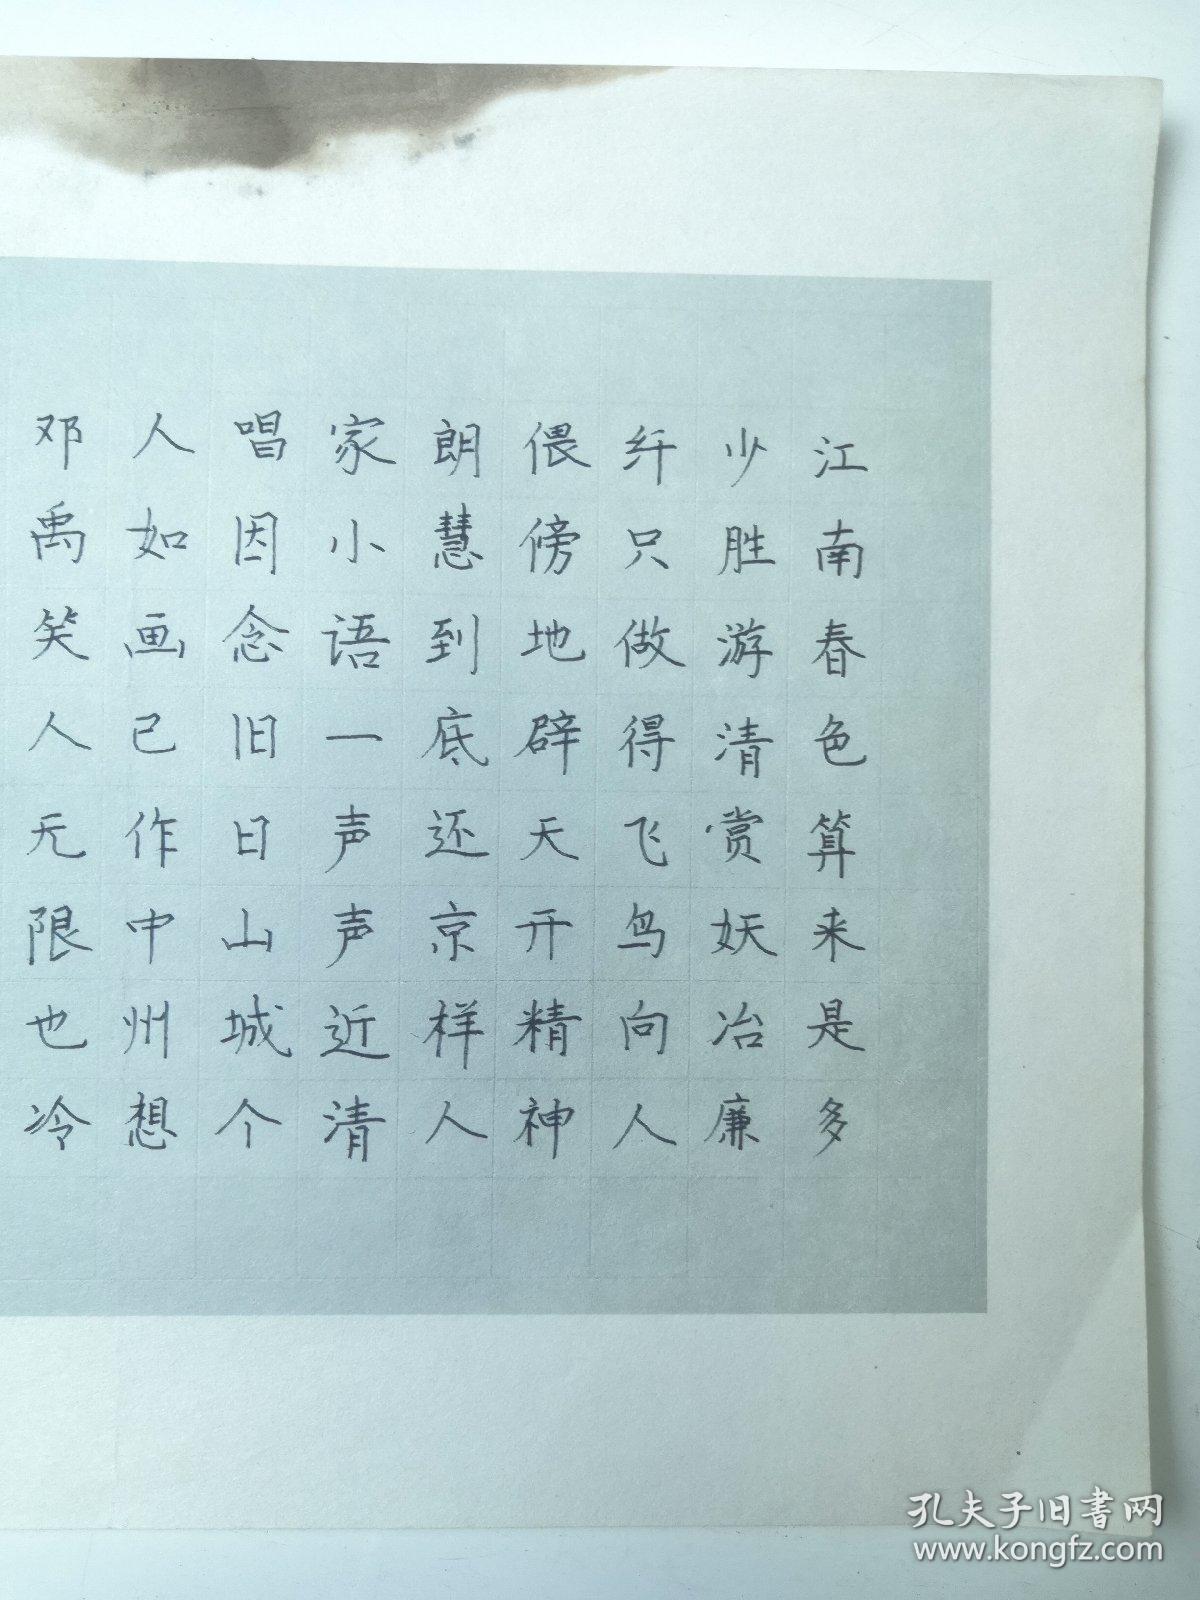 江南春色算来是多
少胜游清赏妖冶廉
纤只做得飞鸟向人
偎傍地辟天开精神
朗慧到底还京样人
家小语一声声近清
唱因念旧日山城个
人如画已作中州想
邓禹笑人无限也冷
孔夫子旧书网
www.kongfz.com